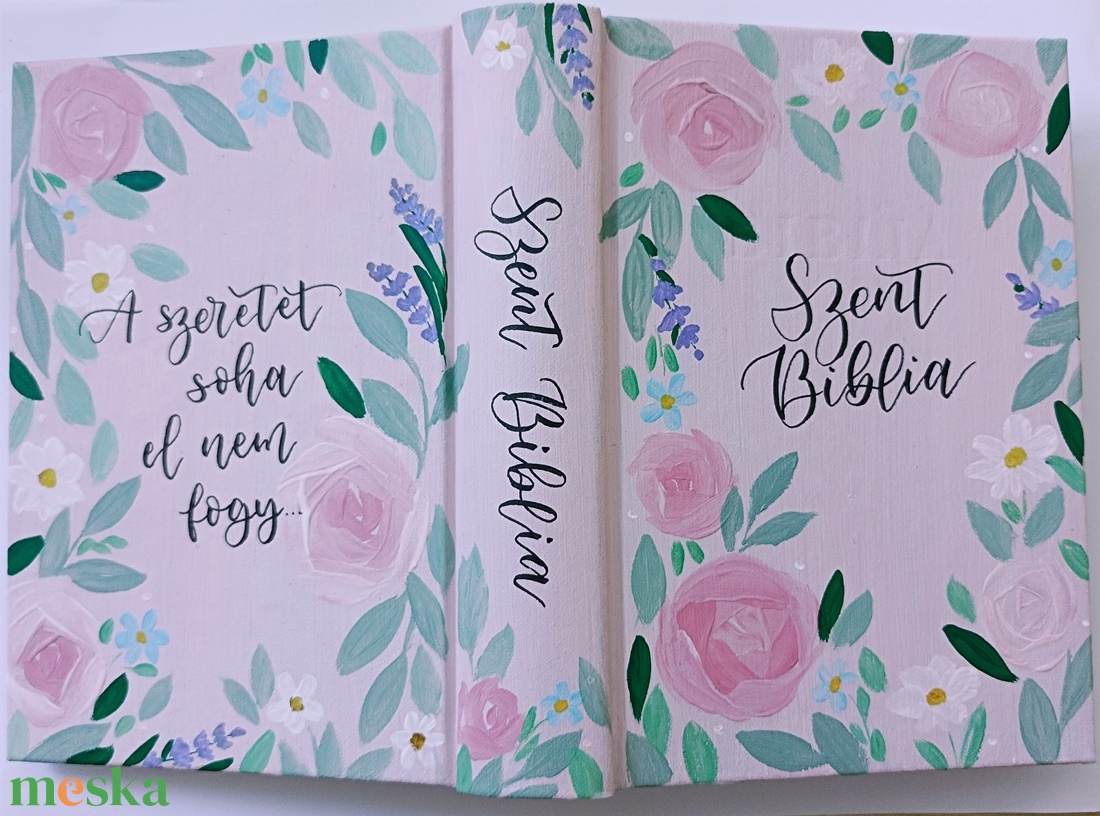 A szeretet
soha
el nem
fogy...
Szent Biblia
Szent
Biblia
meska